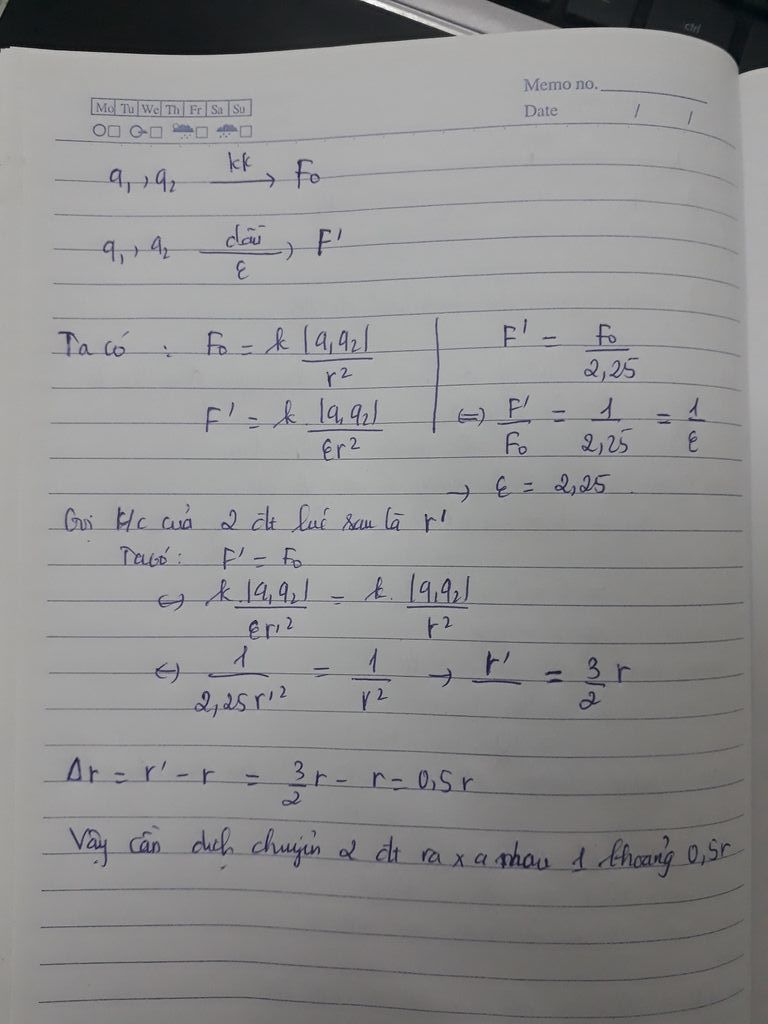 Memo no.
Mo Tu We Th Fr Sa Su
Date / /
q₁, q₂ —kk→ F₀
q₁, q₂ —dầu/ε→ F'
Ta có : F₀ = k |q₁q₂| / r²
F' = k |q₁q₂| / εr²
F' = F₀ / 2,25
⇔ F'/F₀ = 1/2,25 = 1/ε
→ ε = 2,25
Gọi k/c của 2 đt lúc sau là r'
Ta có : F' = F₀
⇔ k.|q₁q₂| / εr'² = k.|q₁q₂| / r²
⇔ 1 / 2,25r'² = 1 / r² → r' = 3/2 r
Δr = r' - r = 3/2 r - r = 0,5r
Vậy cần dịch chuyển 2 đt ra xa nhau 1 khoảng 0,5r
ctrl